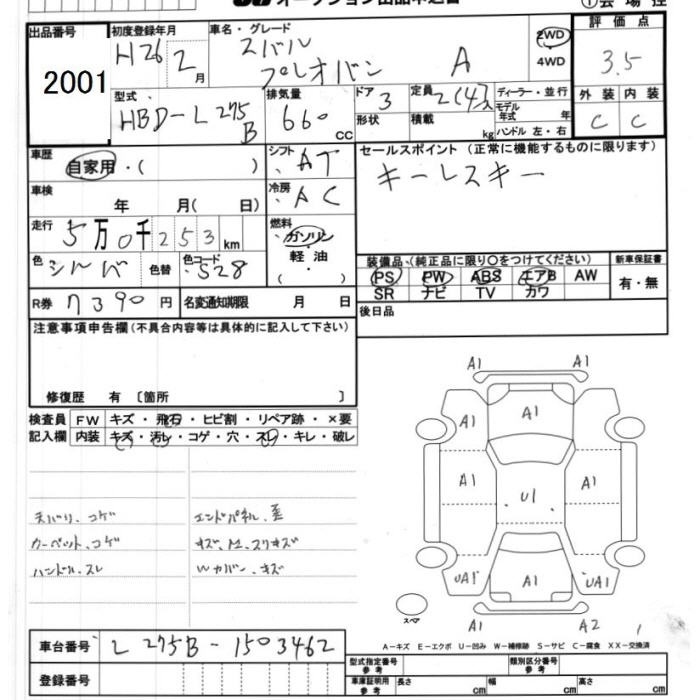 オークション出品申込書
①会場控
出品番号 初度登録年月 車名・グレード 評価点
2001
H26 2月 スバル プレオバン A 2WD 4WD 3.5
型式 排気量 ドア 定員 ディーラー・並行
HBD-L275B 660 CC 3 2(4)人
形状 積載 kg モデル年式 年 ハンドル 左・右
外装 内装
C C
車歴 自家用・( ) シフト AT
セールスポイント (正常に機能するものに限ります)
キーレスキー
車検 年 月( 日) 冷房 AC
走行 5万0千253km 燃料 ガソリン・軽油・( )
色 シルバ 色替 色コード S28
装備品 (純正品に限り○をつけてください) 新車保証書
PS PW ABS エアB AW 有・無
SR ナビ TV カワ
R券 7390円 名変通知期限 月 日
後日品
注意事項申告欄(不具合内容等は具体的に記入して下さい)
修復歴 有 〔箇所 〕
検査員 FW キズ・飛石・ヒビ割・リペア跡・×要
記入欄 内装 キズ・汚レ・コゲ・穴・スレ・キレ・破レ
天バリ、コゲ エンドパネル、歪
カーペット、コゲ キズ、M、スリキズ
ハンドル、スレ Wカバン、キズ
A1 A1
A1 A1 A1
A1 U1 A1
UA1 A1 UA1
スペア
A1 A2
車台番号 L275B-1503462
A-キズ E-エクボ U-凹み W-補修跡 S-サビ C-腐食 XX-交換済
登録番号
型式指定番号 参考 類別区分番号 参考
車庫証明用 参考 長さ cm 幅 cm 高さ cm